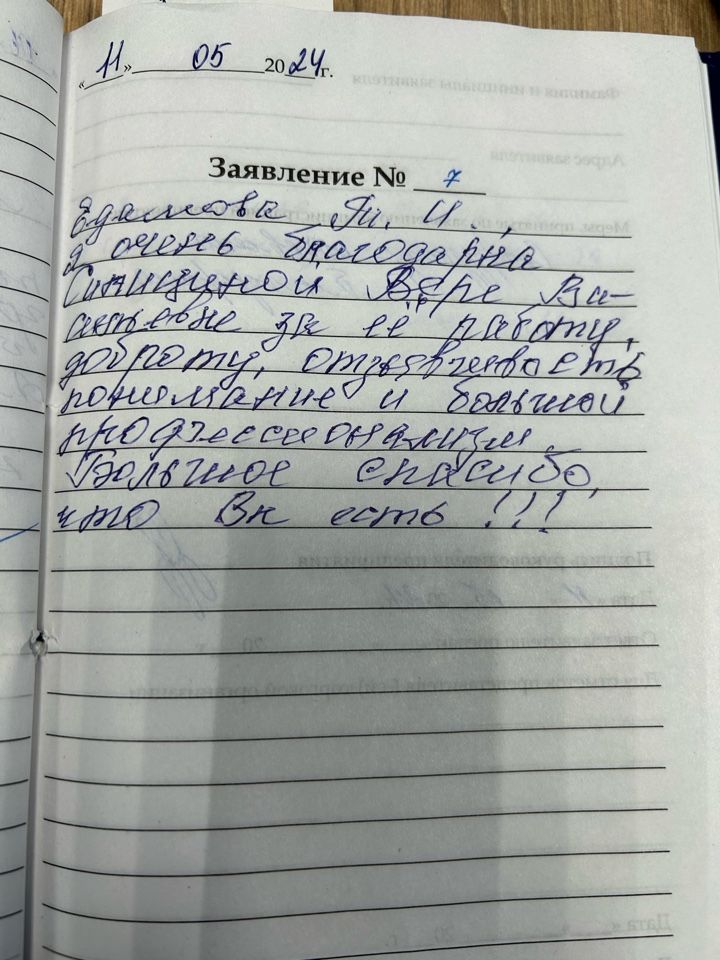 « 11 » 05 2024 г.
Заявление № 7
Едакова Т. И.,
я очень благодарна
Спициной Вере Ва-
сильевне за её работу,
доброту, отзывчивость
понимание и большой
профессионализм.
Большое спасибо,
что Вы есть !!!